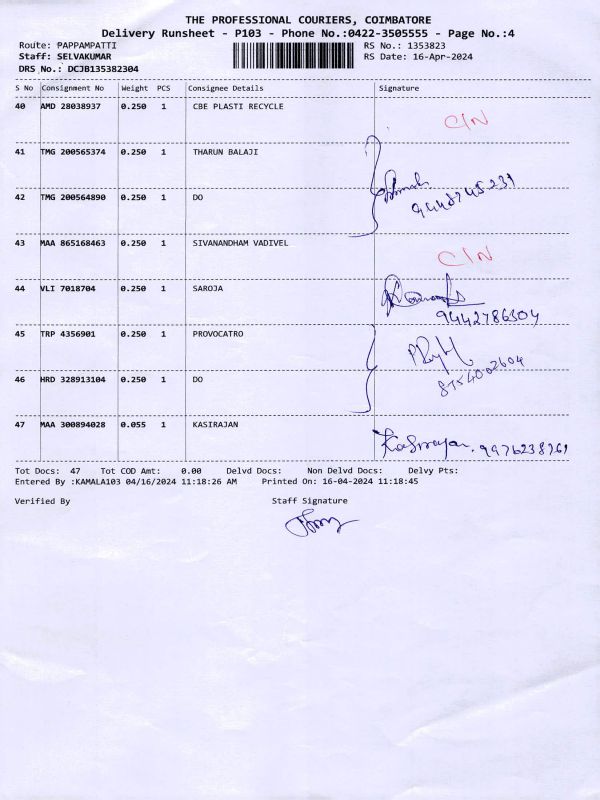 THE PROFESSIONAL COURIERS, COIMBATORE
Delivery Runsheet - P103 - Phone No.:0422-3505555 - Page No.:4
Route: PAPPAMPATTI RS No.: 1353823
Staff: SELVAKUMAR RS Date: 16-Apr-2024
DRS No.: DCJB135382304
S No Consignment No Weight PCS Consignee Details Signature
40 AMD 28038937 0.250 1 CBE PLASTI RECYCLE
C/N
41 TMG 200565374 0.250 1 THARUN BALAJI
42 TMG 200564890 0.250 1 DO
43 MAA 865168463 0.250 1 SIVANANDHAM VADIVEL
C/N
44 VLI 7018704 0.250 1 SAROJA
9442786304
45 TRP 4356901 0.250 1 PROVOCATRO
46 HRD 328913104 0.250 1 DO
8754002604
47 MAA 300894028 0.055 1 KASIRAJAN
Kasirajan.
Tot Docs: 47 Tot COD Amt: 0.00 Delvd Docs: Non Delvd Docs: Delvy Pts:
Entered By :KAMALA103 04/16/2024 11:18:26 AM Printed On: 16-04-2024 11:18:45
Verified By Staff Signature